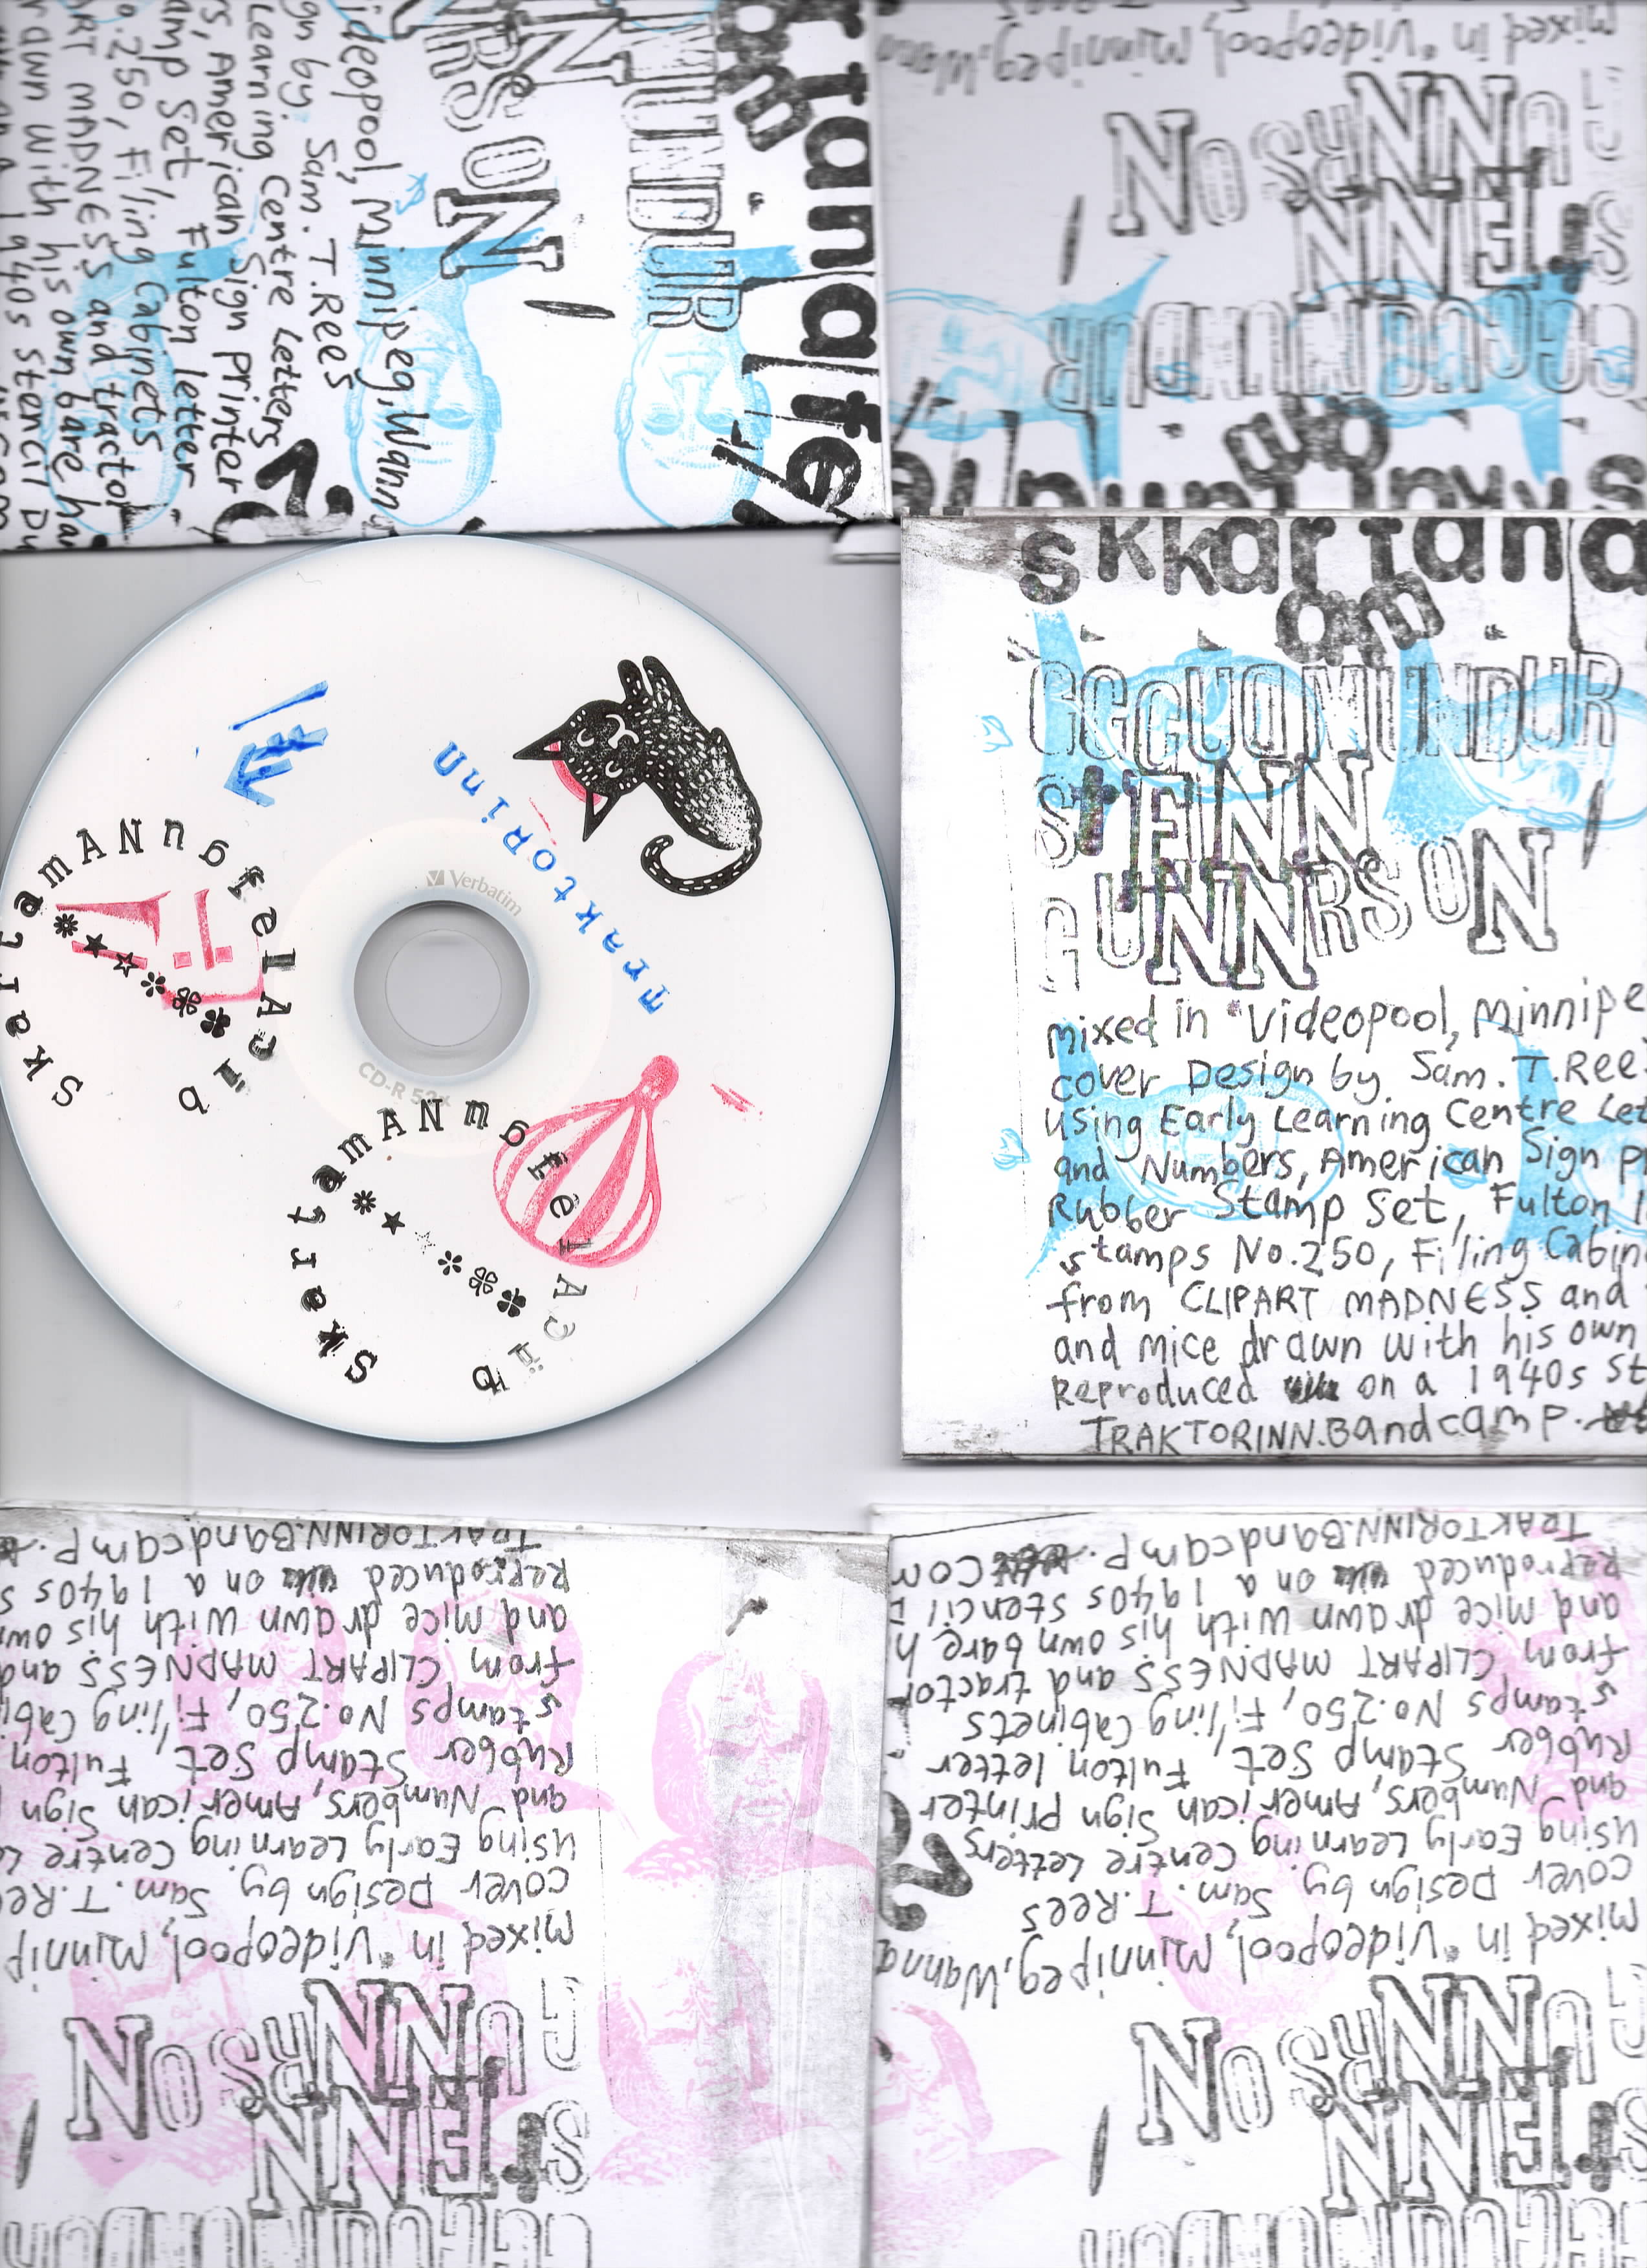 MUNDUR
NN
NRS ON
ideopool, Minnipeg, Wann
gn by. Sam. T.Rees
Learning Centre Letters
s, American Sign Printer
amp Set, Fulton letter
o.250, Filing Cabinets
ART MADNESS and tractor
rawn with his own bare ha
1940s stencil Du
am
GGGUDMUNDUR
STEINN
GUNNRS ON
mixed in "Videopool, Minnipeg, Wann
TraktoRinn
Verbatim
CD-R 52x
skkartana
am
GGGUDMUNDUR
STEINN
GUNNRS ON
mixed in "Videopool, Minnipe
cover Design by Sam. T.Rees
using Early Learning Centre Let
and Numbers, American Sign pr
Rubber Stamp Set, Fulton l
stamps No.250, Filing Cabin
from CLIPART MADNESS and
and mice drawn with his own
Reproduced on a 1940s St
TRAKTORINN.Bandcamp.
STEINN
GUNNRS ON
mixed in "Videopool, Minnip
cover Design by. Sam. T.Ree
using Early Learning Centre Le
and Numbers, American Sign
Rubber Stamp Set, Fulton
stamps No.250, Filing Cabi
from CLIPART MADNESS and
and mice drawn with his own
Reproduced on a 1940s s
TRAKTORINN.Bandcamp.
STEINN
GUNNRS ON
mixed in "Videopool, Minnipeg, Wanna
cover Design by. Sam. T.Rees
using Early Learning Centre Letters
and Numbers, American Sign Printer
Rubber Stamp Set, Fulton letter
stamps No.250, Filing Cabinets
from CLIPART MADNESS and tractor
and mice drawn with his own bare h
Reproduced on a 1940s stencil
TRAKTORINN.Bandcamp. COM